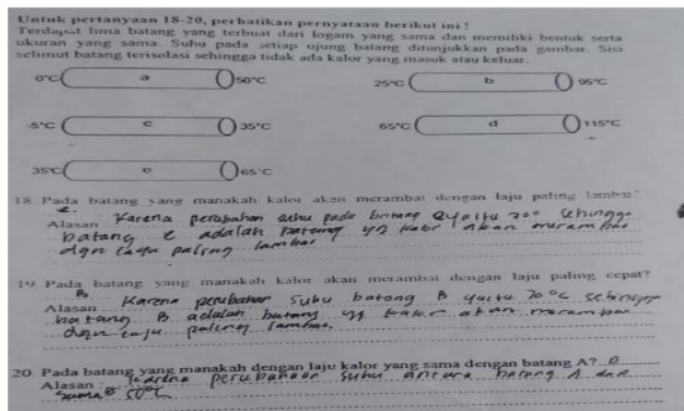 Untuk pertanyaan 18-20, perhatikan pernyataan berikut ini !
Terdapat lima batang yang terbuat dari logam yang sama dan memiliki bentuk serta
ukuran yang sama. Suhu pada setiap ujung batang ditunjukkan pada gambar. Sisi
selimut batang terisolasi sehingga tidak ada kalor yang masuk atau keluar.
0°C a 50°C 25°C b 95°C
-5°C c 35°C 65°C d 115°C
35°C e 65°C
18. Pada batang yang manakah kalor akan merambat dengan laju paling lambat?
e.
Alasan Karena perubahan suhu pada batang e yaitu sehingga
batang e adalah batang yg kalor akan merambat
dgn laju paling lambat
19. Pada batang yang manakah kalor akan merambat dengan laju paling cepat?
B.
Alasan Karena perubahan suhu batang B yaitu 70°C sehingga
batang B adalah batang yg kalor akan merambat
dgn laju paling lambat.
20. Pada batang yang manakah dengan laju kalor yang sama dengan batang A? D
Alasan Karena perubahan suhu antara batang A dan
sama 50°C